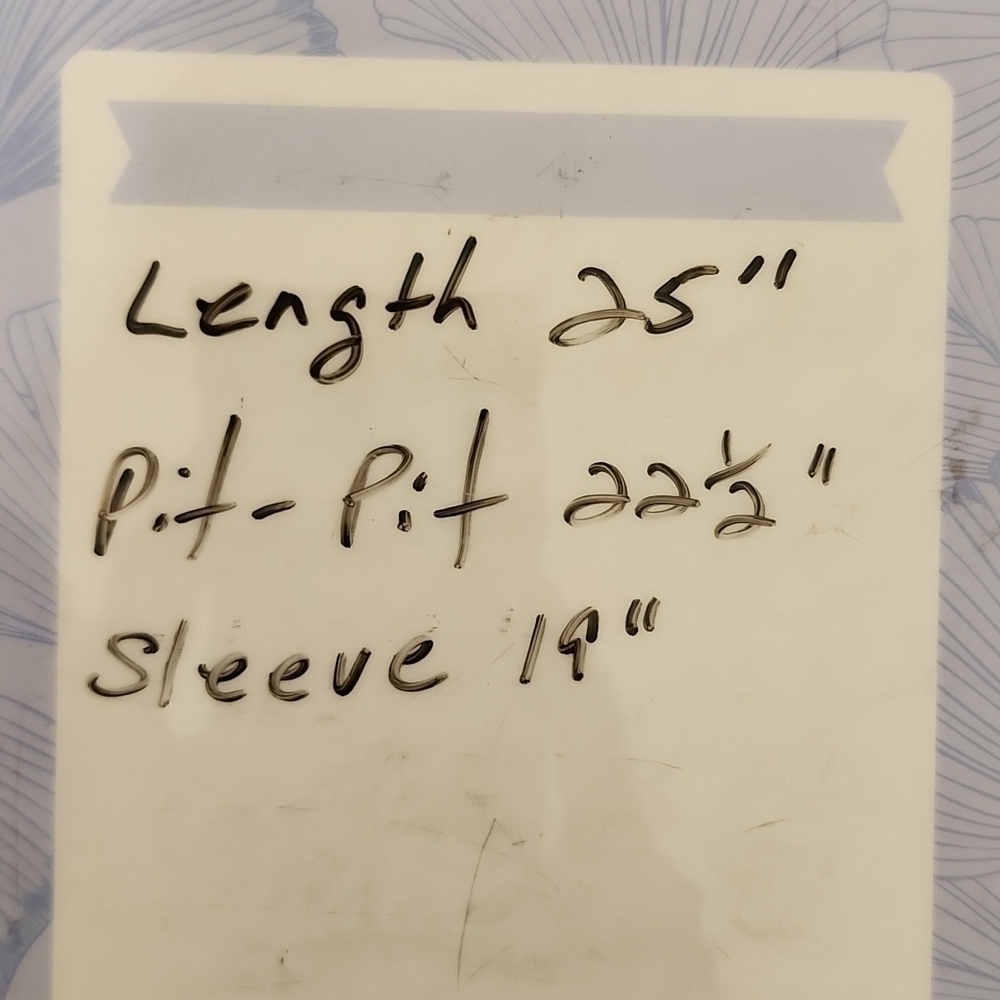 Length 25"
Pit-Pit 22½"
Sleeve 19"